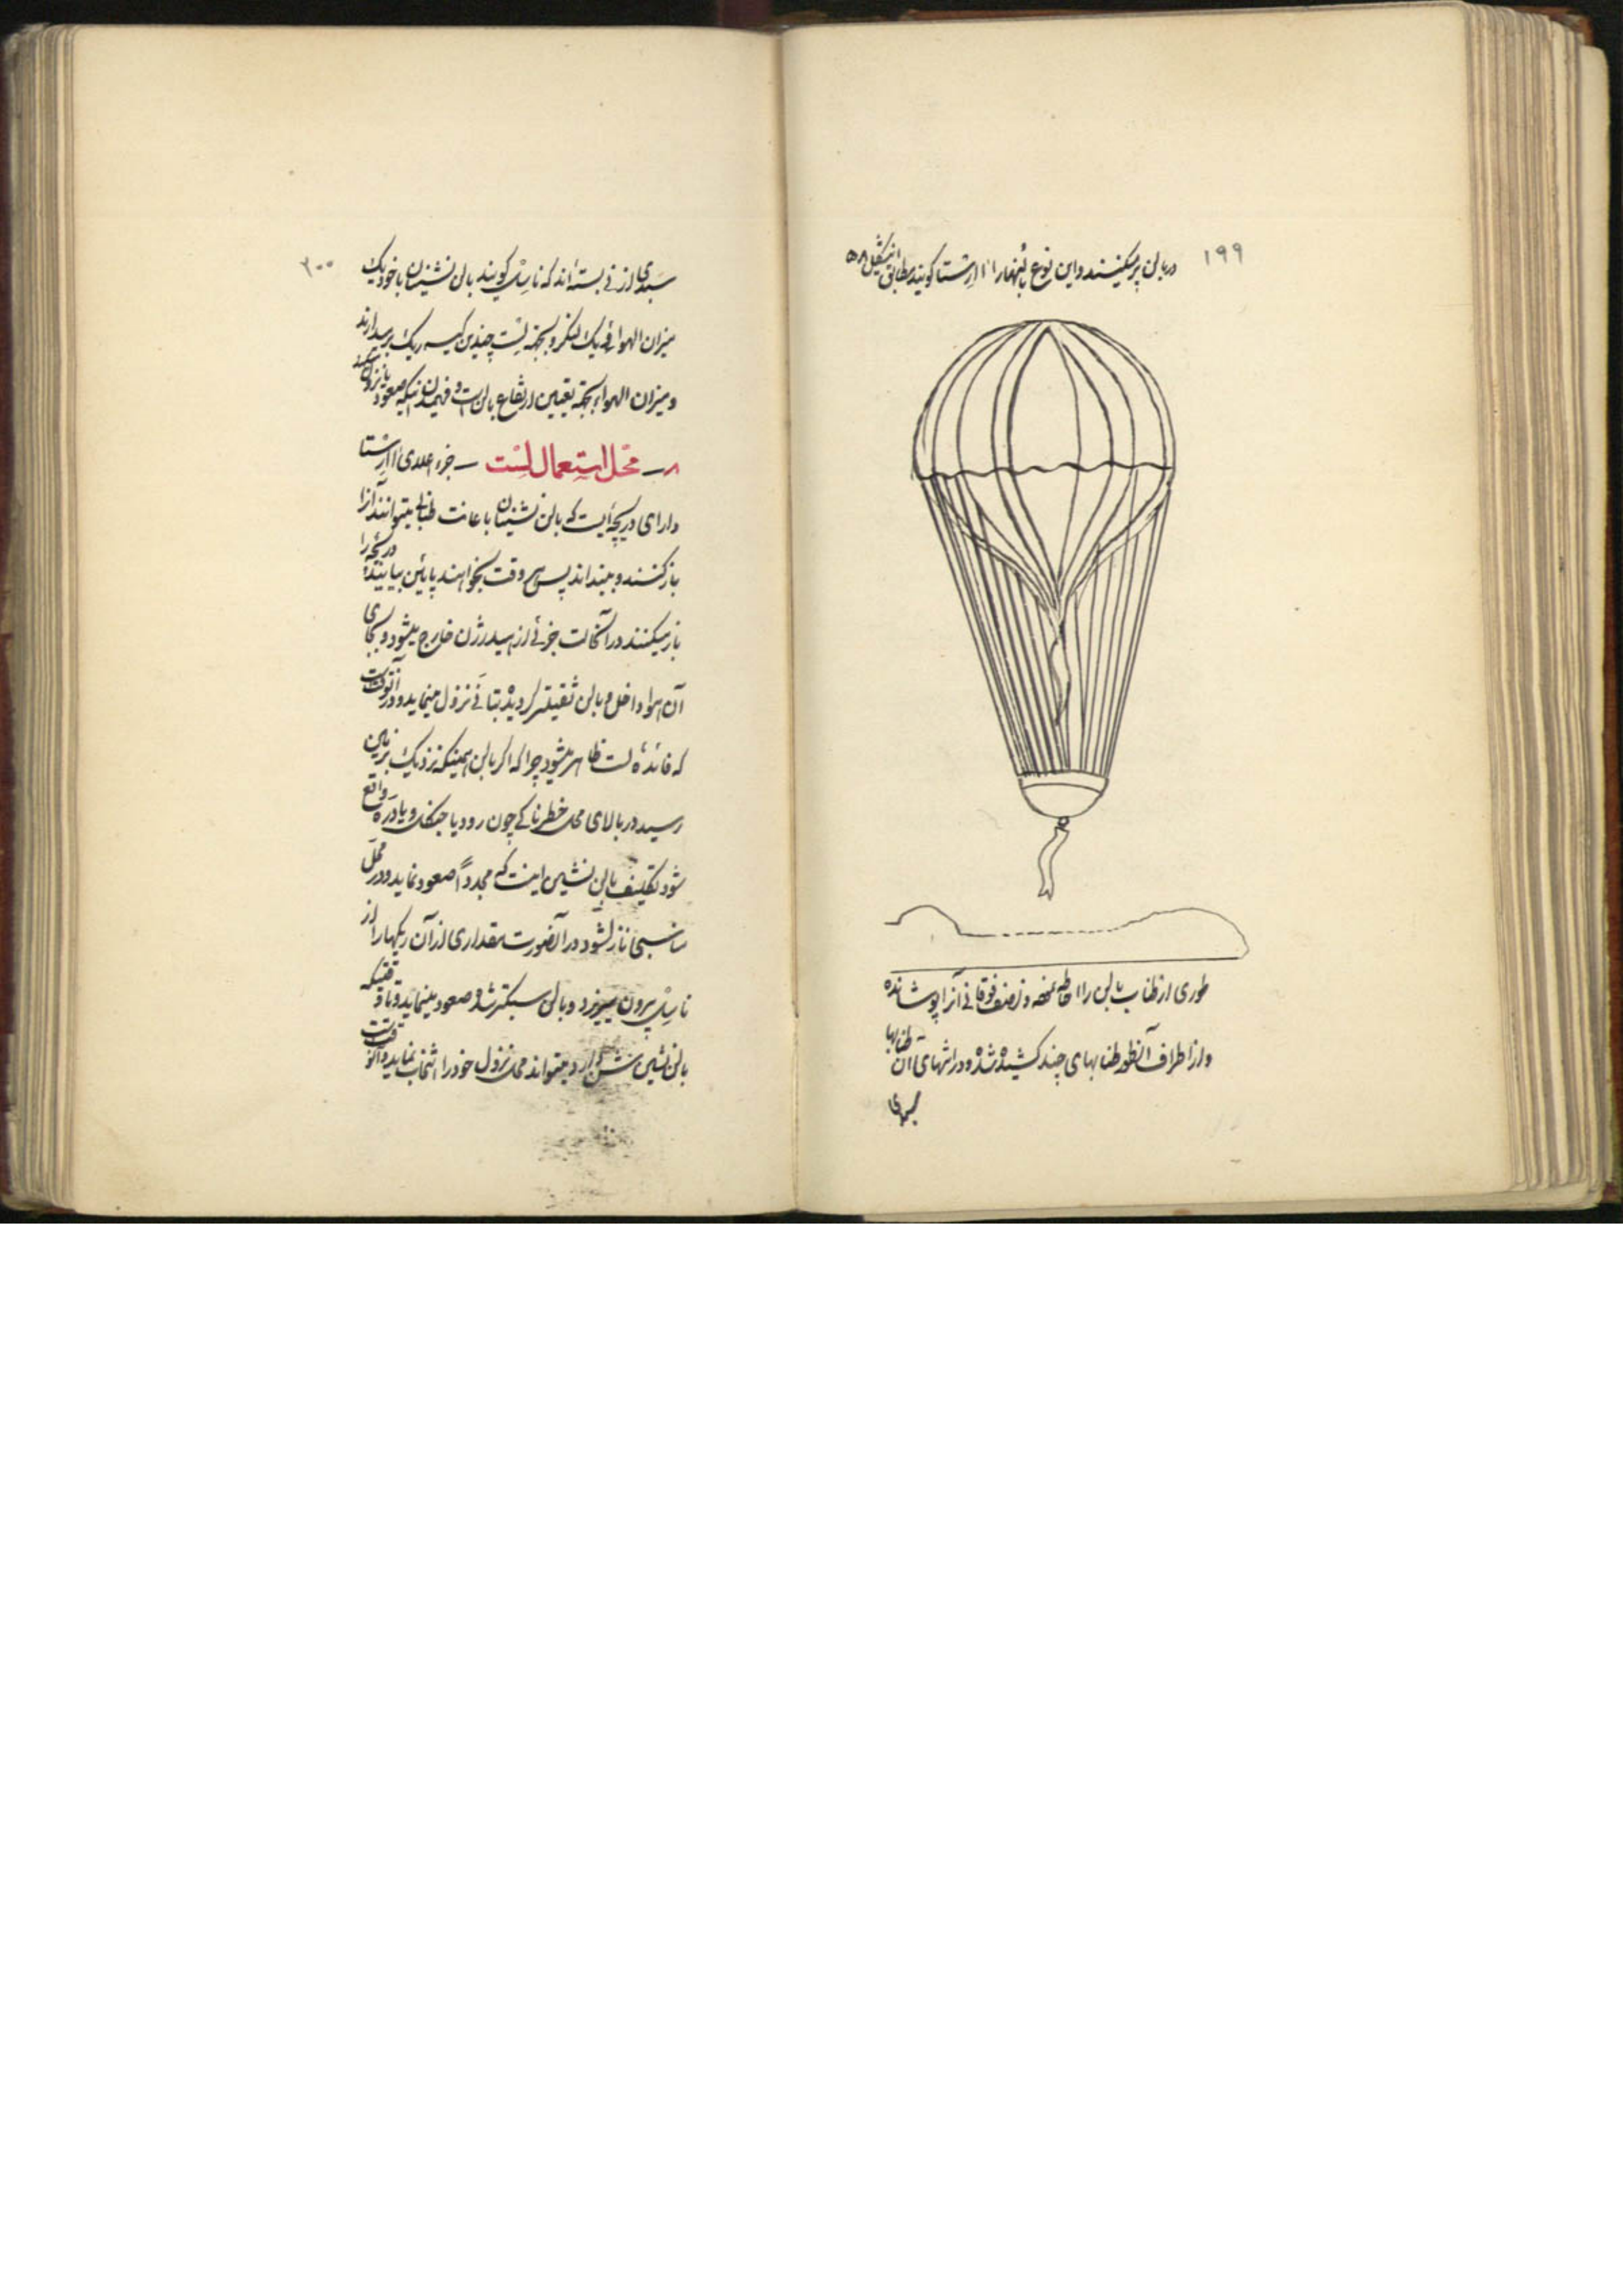 ۱۹۹
در بالن پر میکنند و این نوع بالنهارا ااارستا گویند مطابق اینشکل ۵۸
طوری از طناب بالن را احاطه نموده و نصف فوقانی آنرا پوشانده
و از اطراف آنطور طنابهای چند کشیده شده و در انتهای آن طنابها
سبدی
۲۰۰
سبدی از نی بسته‌اند که ناسل گویند بالن نشینان با خود یک
میزان الهوا فی یک لنگر و بجهته لست چندین کیسه ریگ برمیدارند
و میزان الهوا بجهته تعیین ارتفاع بالن است و فهمیدن اینکه صعود یا نزول میکند
۸ — محل استعمال لست — جزء اعلای ااارستا
دارای دریچه‌ایست که بالن نشینان با عانت طنابی میتوانند آنرا
باز کنند و ببندند پس هر وقت بخواهند پائین بیایند دریچه را
باز میکنند در آنحالت جزئی از هیدرژن خارج میشود و بجای
آن هوا داخل و بالن ثقیلتر گردیده بتأنی نزول مینماید و در آنوقت
که فائده لست ظاهر میشود چرا که اگر بالن همینکه نزدیک بزمین
رسید در بالای محل خطرناکی چون رود یا جنگل و یا دره واقع
شود تکلیف بالن نشین اینست که مجدداً صعود نماید و در محل
مناسبی نازل شود در آنصورت مقداری از آن ریگها را از
ناسل بیرون میریزد و بالن سبکتر شده صعود مینماید و تا وقتیکه
بالن نشین شن دارد میتواند محل نزول خود را انتخاب نماید و آنوقت